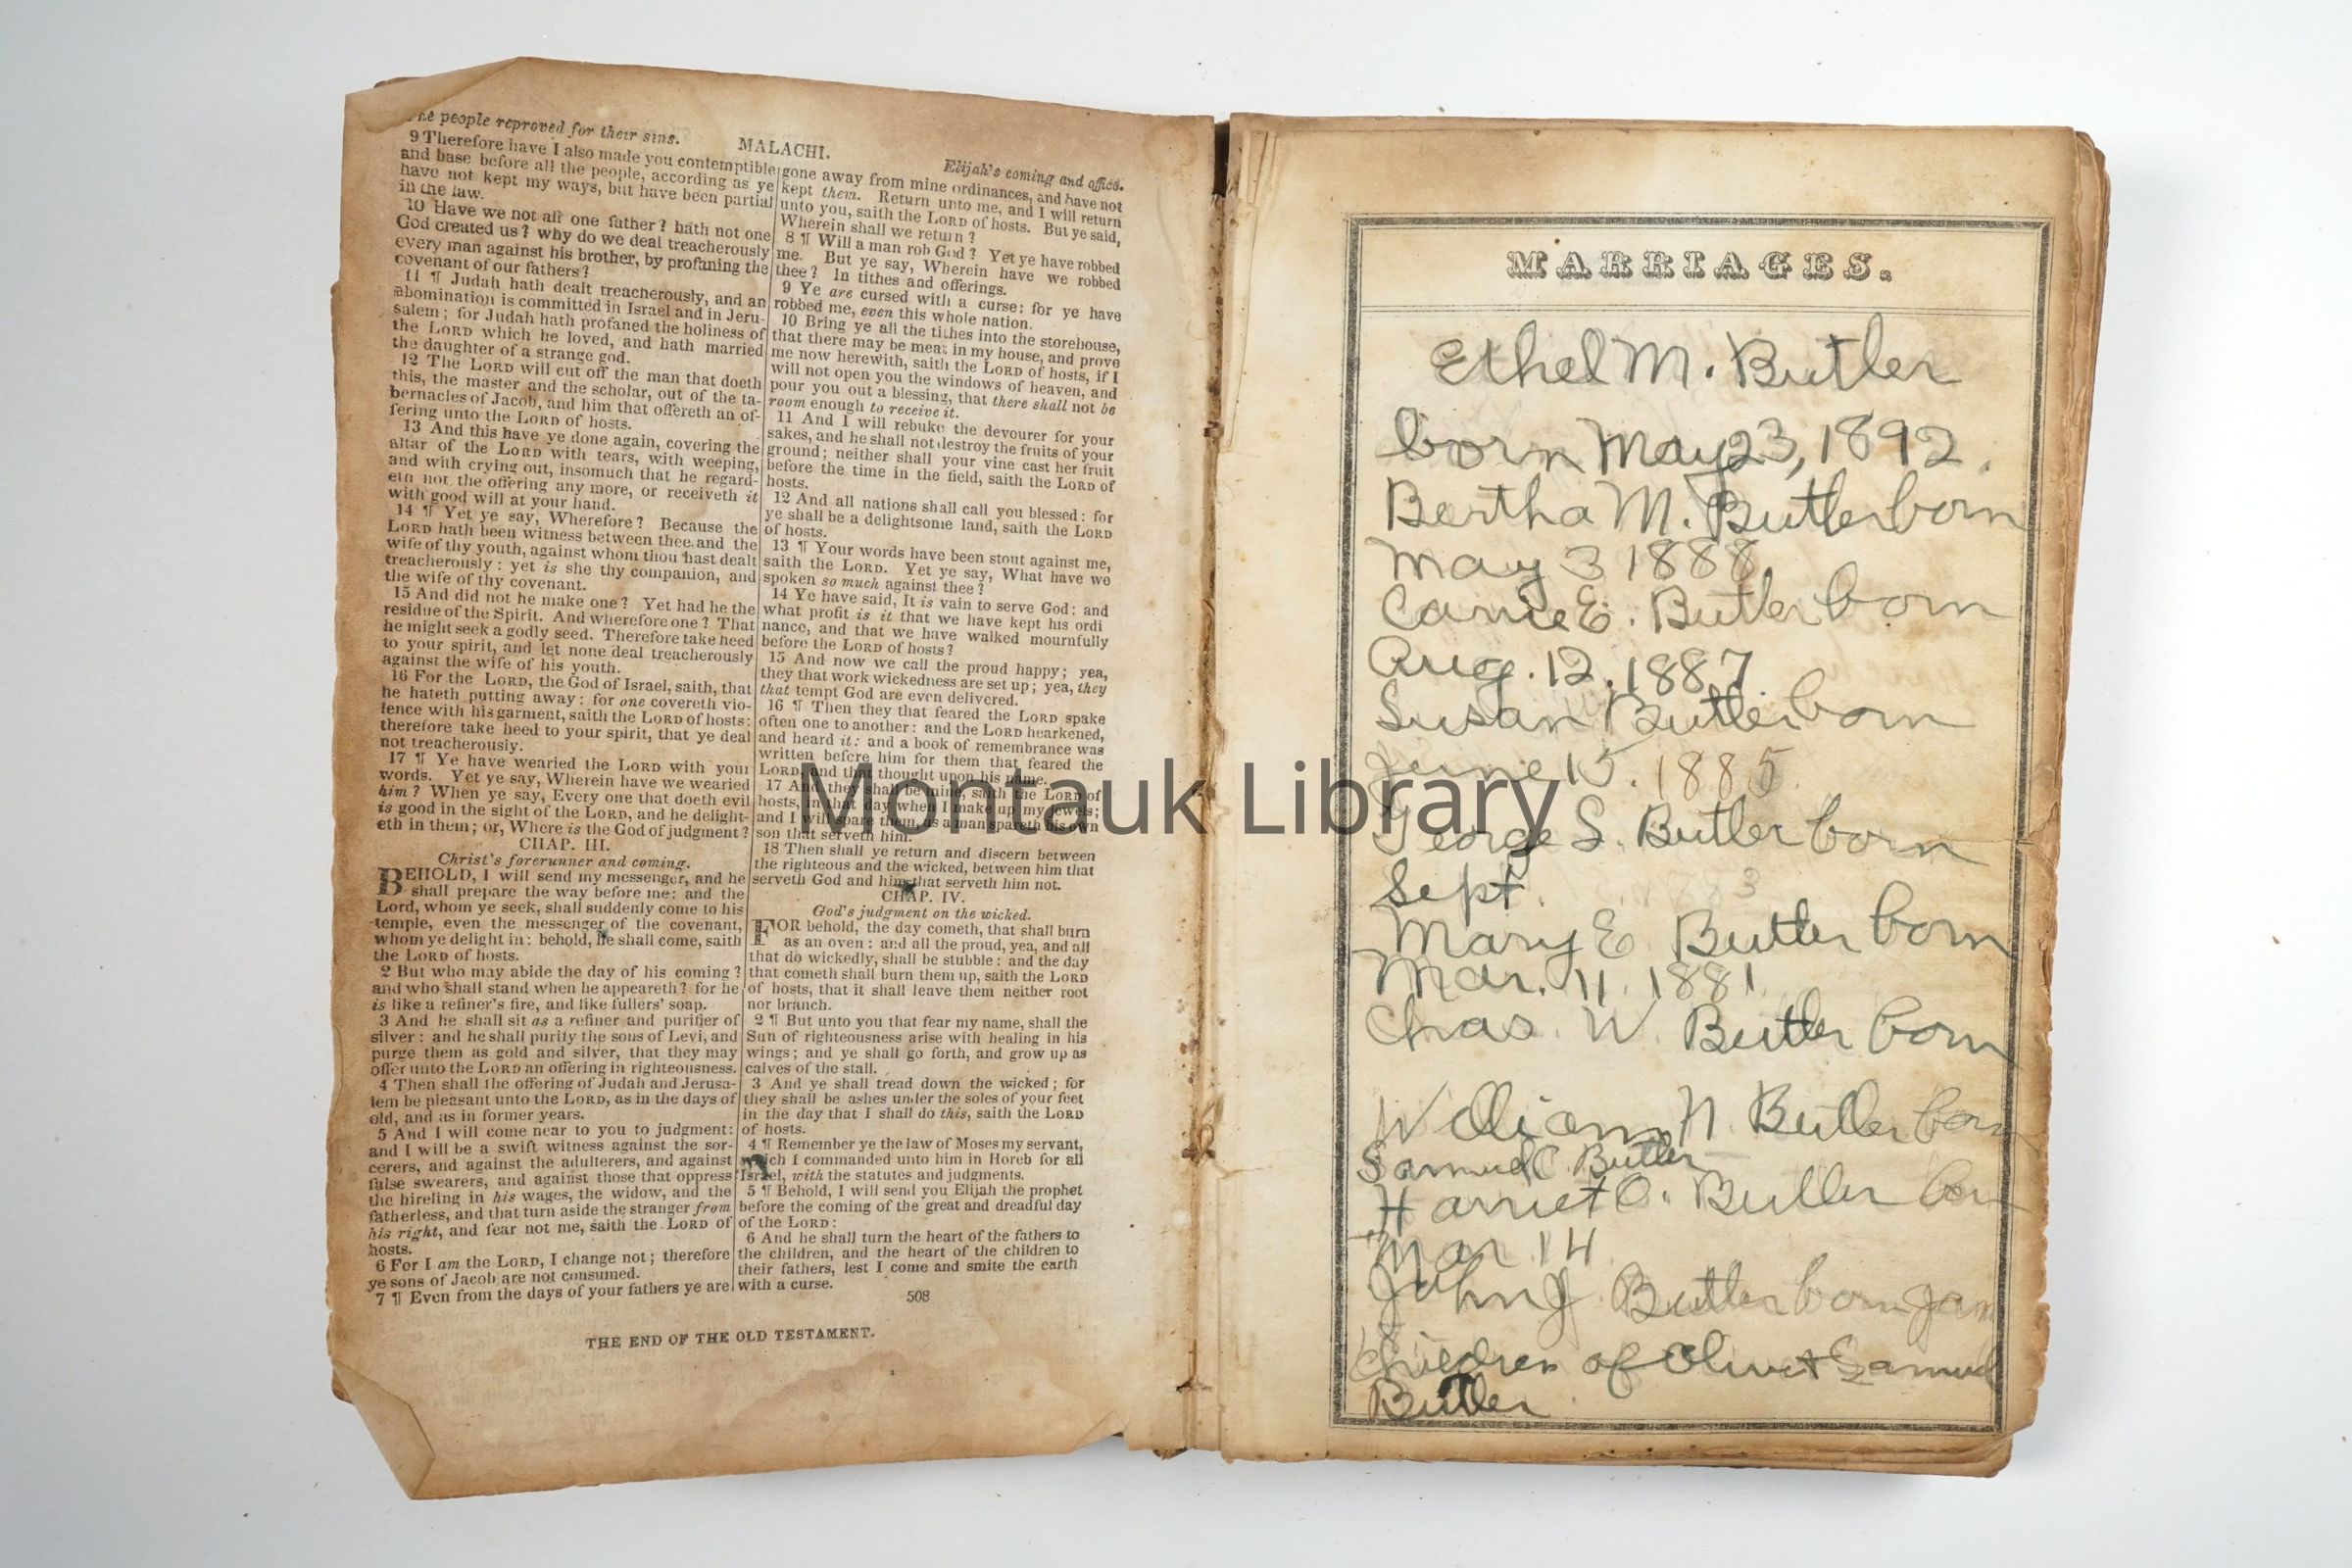 The people reproved for their sins.
MALACHI.
Elijah's coming and office.
9 Therefore have I also made you contemptible
and base before all the people, according as ye
have not kept my ways, but have been partial
in the law.
10 Have we not all one father? hath not one
God created us? why do we deal treacherously
every man against his brother, by profaning the
covenant of our fathers?
11 ¶ Judah hath dealt treacherously, and an
abomination is committed in Israel and in Jeru-
salem; for Judah hath profaned the holiness of
the LORD which he loved, and hath married
the daughter of a strange god.
12 The LORD will cut off the man that doeth
this, the master and the scholar, out of the ta-
bernacles of Jacob, and him that offereth an of-
fering unto the LORD of hosts.
13 And this have ye done again, covering the
altar of the LORD with tears, with weeping,
and with crying out, insomuch that he regard-
eth not the offering any more, or receiveth it
with good will at your hand.
14 ¶ Yet ye say, Wherefore? Because the
LORD hath been witness between thee and the
wife of thy youth, against whom thou hast dealt
treacherously: yet is she thy companion, and
the wife of thy covenant.
15 And did not he make one? Yet had he the
residue of the Spirit. And wherefore one? That
he might seek a godly seed. Therefore take heed
to your spirit, and let none deal treacherously
against the wife of his youth.
16 For the LORD, the God of Israel, saith, that
he hateth putting away: for one covereth vio-
lence with his garment, saith the LORD of hosts:
therefore take heed to your spirit, that ye deal
not treacherously.
17 ¶ Ye have wearied the LORD with your
words. Yet ye say, Wherein have we wearied
him? When ye say, Every one that doeth evil
is good in the sight of the LORD, and he delight-
eth in them; or, Where is the God of judgment?
CHAP. III.
Christ's forerunner and coming.
BEHOLD, I will send my messenger, and he
shall prepare the way before me: and the
Lord, whom ye seek, shall suddenly come to his
temple, even the messenger of the covenant,
whom ye delight in: behold, he shall come, saith
the LORD of hosts.
2 But who may abide the day of his coming?
and who shall stand when he appeareth? for he
is like a refiner's fire, and like fullers' soap.
3 And he shall sit as a refiner and purifier of
silver: and he shall purify the sons of Levi, and
purge them as gold and silver, that they may
offer unto the LORD an offering in righteousness.
4 Then shall the offering of Judah and Jerusa-
lem be pleasant unto the LORD, as in the days of
old, and as in former years.
5 And I will come near to you to judgment:
and I will be a swift witness against the sor-
cerers, and against the adulterers, and against
false swearers, and against those that oppress
the hireling in his wages, the widow, and the
fatherless, and that turn aside the stranger from
his right, and fear not me, saith the LORD of
hosts.
6 For I am the LORD, I change not; therefore
ye sons of Jacob are not consumed.
7 ¶ Even from the days of your fathers ye are
gone away from mine ordinances, and have not
kept them. Return unto me, and I will return
unto you, saith the LORD of hosts. But ye said,
Wherein shall we return?
8 ¶ Will a man rob God? Yet ye have robbed
me. But ye say, Wherein have we robbed
thee? In tithes and offerings.
9 Ye are cursed with a curse: for ye have
robbed me, even this whole nation.
10 Bring ye all the tithes into the storehouse,
that there may be meat in my house, and prove
me now herewith, saith the LORD of hosts, if I
will not open you the windows of heaven, and
pour you out a blessing, that there shall not be
room enough to receive it.
11 And I will rebuke the devourer for your
sakes, and he shall not destroy the fruits of your
ground; neither shall your vine cast her fruit
before the time in the field, saith the LORD of
hosts.
12 And all nations shall call you blessed: for
ye shall be a delightsome land, saith the LORD
of hosts.
13 ¶ Your words have been stout against me,
saith the LORD. Yet ye say, What have we
spoken so much against thee?
14 Ye have said, It is vain to serve God: and
what profit is it that we have kept his ordi
nance, and that we have walked mournfully
before the LORD of hosts?
15 And now we call the proud happy; yea,
they that work wickedness are set up; yea, they
that tempt God are even delivered.
16 ¶ Then they that feared the LORD spake
often one to another: and the LORD hearkened,
and heard it: and a book of remembrance was
written before him for them that feared the
LORD, and that thought upon his name.
17 And they shall be mine, saith the LORD of
hosts, in that day when I make up my jewels;
and I will spare them, as a man spareth his own
son that serveth him.
18 Then shall ye return and discern between
the righteous and the wicked, between him that
serveth God and him that serveth him not.
CHAP. IV.
God's judgment on the wicked.
FOR behold, the day cometh, that shall burn
as an oven: and all the proud, yea, and all
that do wickedly, shall be stubble: and the day
that cometh shall burn them up, saith the LORD
of hosts, that it shall leave them neither root
nor branch.
2 ¶ But unto you that fear my name, shall the
Sun of righteousness arise with healing in his
wings; and ye shall go forth, and grow up as
calves of the stall.
3 And ye shall tread down the wicked; for
they shall be ashes under the soles of your feet
in the day that I shall do this, saith the LORD
of hosts.
4 ¶ Remember ye the law of Moses my servant,
which I commanded unto him in Horeb for all
Israel, with the statutes and judgments.
5 ¶ Behold, I will send you Elijah the prophet
before the coming of the great and dreadful day
of the LORD:
6 And he shall turn the heart of the fathers to
the children, and the heart of the children to
their fathers, lest I come and smite the earth
with a curse.
508
THE END OF THE OLD TESTAMENT.
MARRIAGES.
Ethel M. Butler
born May 23, 1892.
Bertha M. Butler born
May 3 1888
Carrie E. Butler born
Aug. 12. 1887
Susan Butler born
June 15. 1885
George S. Butler born
Sept. 1883
Mary E. Butler born
Mar. 11. 1881
Chas. W. Butler born
William N. Butler born
Samuel C. Butler
Harriet O. Butler born
Mar 14
John J. Butler born Jan
Children of Olive & Samuel
Butler
Montauk Library